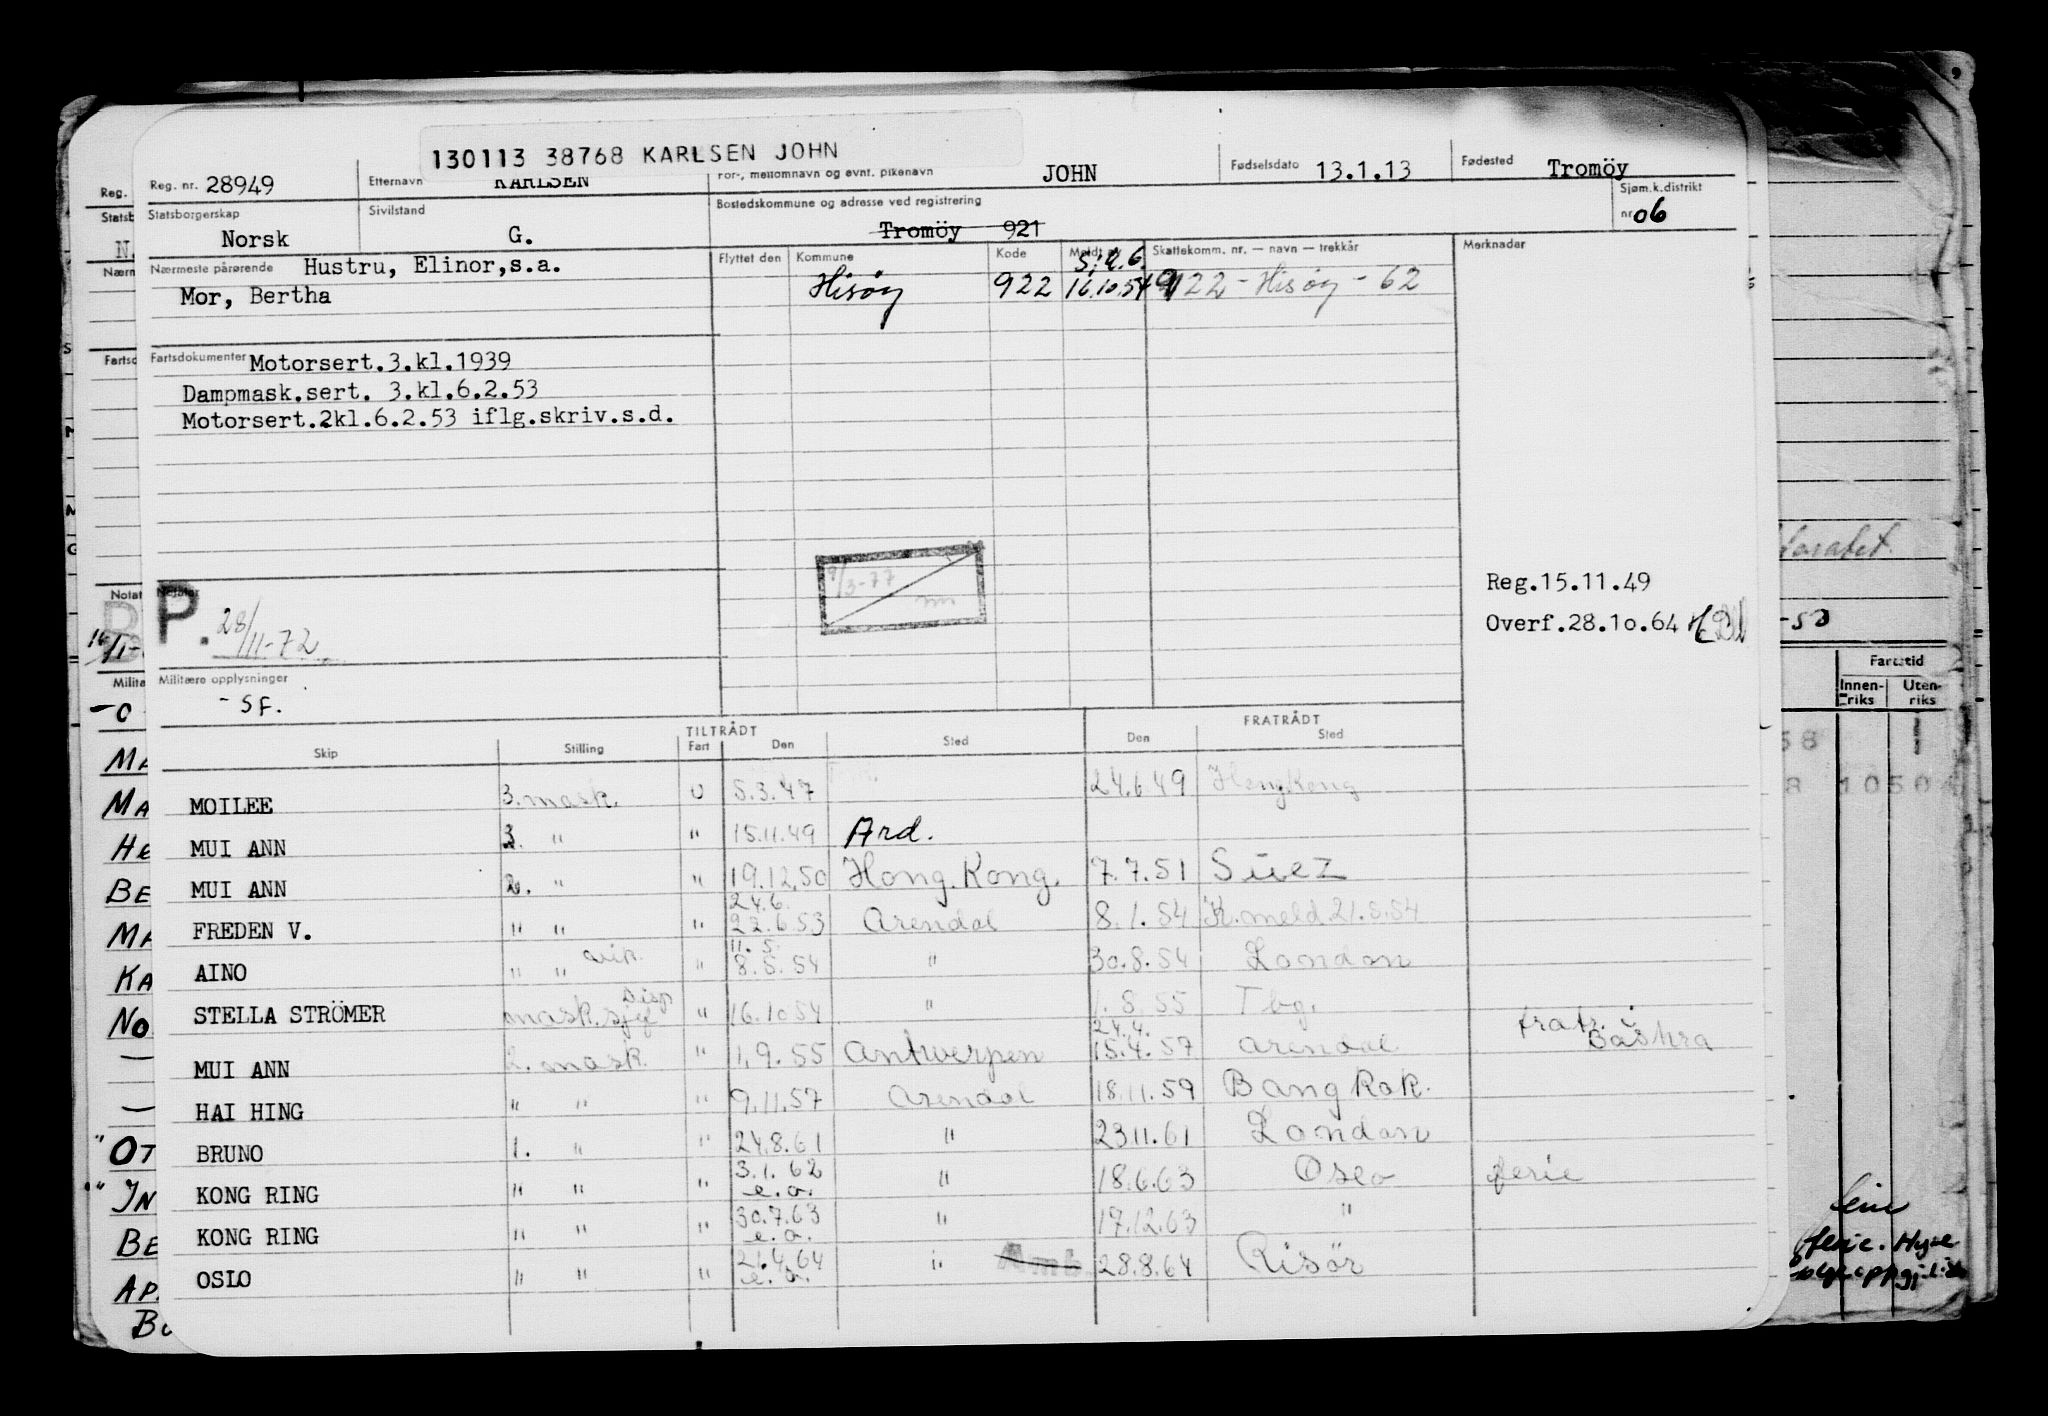 130113 38768 KARLSEN JOHN
Reg. nr. 28949 Etternavn KARLSEN For-, mellomnavn og evnt. pikenavn JOHN Fødselsdato 13.1.13 Fødested Tromöy
Statsborgerskap Norsk Sivilstand G. Bostedskommune og adresse ved registrering Tromöy 921 Sjøm.k.distrikt nr. 06
Nærmeste pårørende Hustru, Elinor,s.a.
Mor, Bertha
Flyttet den Kommune Kode Meldt Skattekomm. nr. — navn — trekkår Merknader
Hisöy 922 16.10.54 922 - Hisöy - 62
Fartsdokumenter Motorsert.3.kl.1939
Dampmask.sert. 3.kl.6.2.53
Motorsert.2kl.6.2.53 iflg.skriv.s.d.
9/3-77
Reg.15.11.49
Overf.28.10.64
Notater
P. 28/11-72
Militære opplysninger
- SF.
TILTRÅDT FRATRÅDT
Skip Stilling Fart Den Sted Den Sted
MOILEE 3. mask. U 5.3.47 24.6.49 Hongkong
MUI ANN " " 15.11.49 Ard.
MUI ANN 2. " " 19.12.50 Hong. Kong. 7.7.51 Suez
24.6.
FREDEN V. " " " 22.6.53 Arendal 8.1.54 K.meld.21.5.54
11.5.
AINO " " " 8.5.54 " 30.8.54 London
STELLA STRÖMER mask.sjef Disp " 16.10.54 " 1.8.55 Tbg.
24.4.
MUI ANN 2. mask. " 1.9.55 Antwerpen 15.4.57 Arendal fratr. i Basra
HAI HING " " " 9.11.57 Arendal 18.11.59 Bangkok.
BRUNO 1. " " 24.8.61 " 23.11.61 London
KONG RING " " " 3.1.62 e.a. " 18.6.63 Oslo ferie
KONG RING " " " 30.7.63 e.a. " 17.12.63 "
OSLO " " " 21.4.64 e.a. " 28.8.64 Risör
Fartstid
Innenriks Utenriks